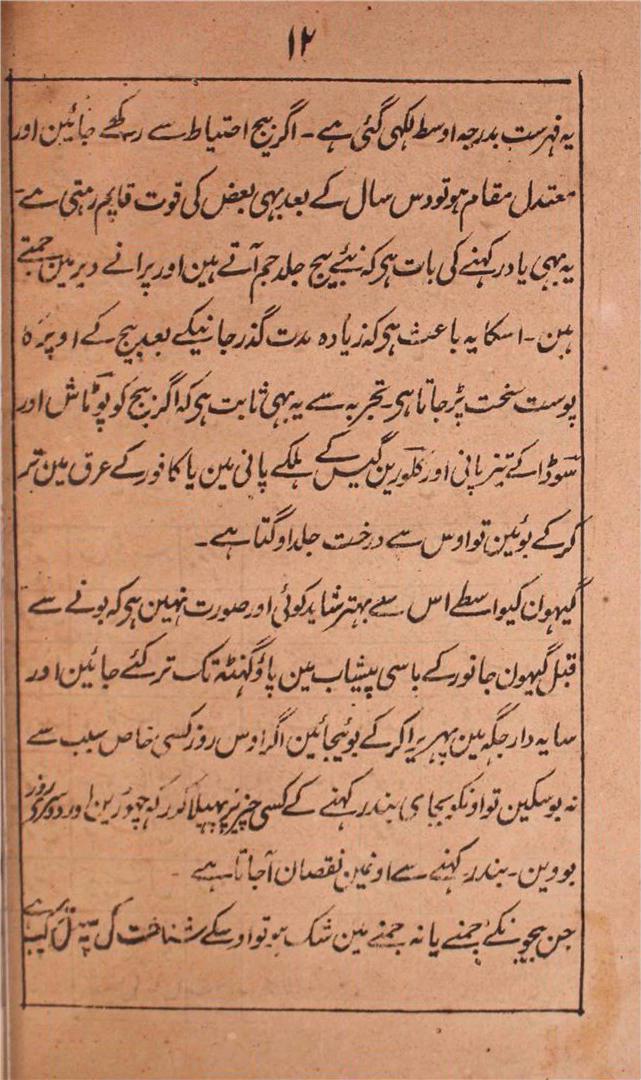 ۱۲
یہ فہرست بدرجہ اوسط لکہی گئی ہے ۔ اگر بیج احتیاط سے رکھے جائین اور
معتدل مقام ہو تو دس سال کے بعد بہی بعض کی قوت قایم رہتی ہے ۔
یہ بہی یاد رکہنے کی بات ہی کہ نئے بیج جلد جم آتے ہین اور پرانے دیر مین جمتے
ہین ۔ اسکا یہ باعث ہی کہ زیادہ مدت گذر جانیکے بعد بیج کے اوپر کا
پوست سخت پڑ جاتا ہی ۔ تجربہ سے یہ بہی ثابت ہی کہ اگر بیج کو پوٹاش اور
سوڈا کے تیز پانی اور کلورین گیس کے ہلکے پانی مین یا کافور کے عرق مین تر
کر کے بوئین تو اوس سے درخت جلد اوگتا ہے ۔
گیہون کیواسطے اس سے بہتر شاید کوئی اور صورت نہین ہی کہ بونے سے
قبل گیہون جانور کے باسی پیشاب مین پاؤ گہنٹہ تک تر کئے جائین اور
سایہ دار جگہ مین پہریرا کر کے بوئیجائین اگر اوس روز کسی خاص سبب سے
نہ بوسکین تو اونکو بجای بند رکہنے کے کسی چیز پر پہیلا کر رکہ چہوڑین اور دوسری روز
بووین ۔ بند رکہنے سے اونمین نقصان آجاتا ہے ۔
جن بیجونکے جمنے یا نہ جمنے مین شک ہو تو اوسکے شناخت کی یہ ہے